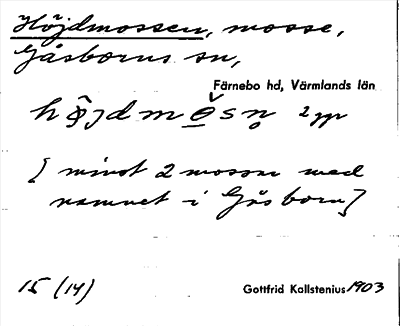 Höjdmossen, mosse,
Gåsborns sn,
Färnebo hd, Värmlands län
2 ggr
[minst 2 mossar med
namnet i Gåsborn]
15 (14)
Gottfrid Kallstenius 1903